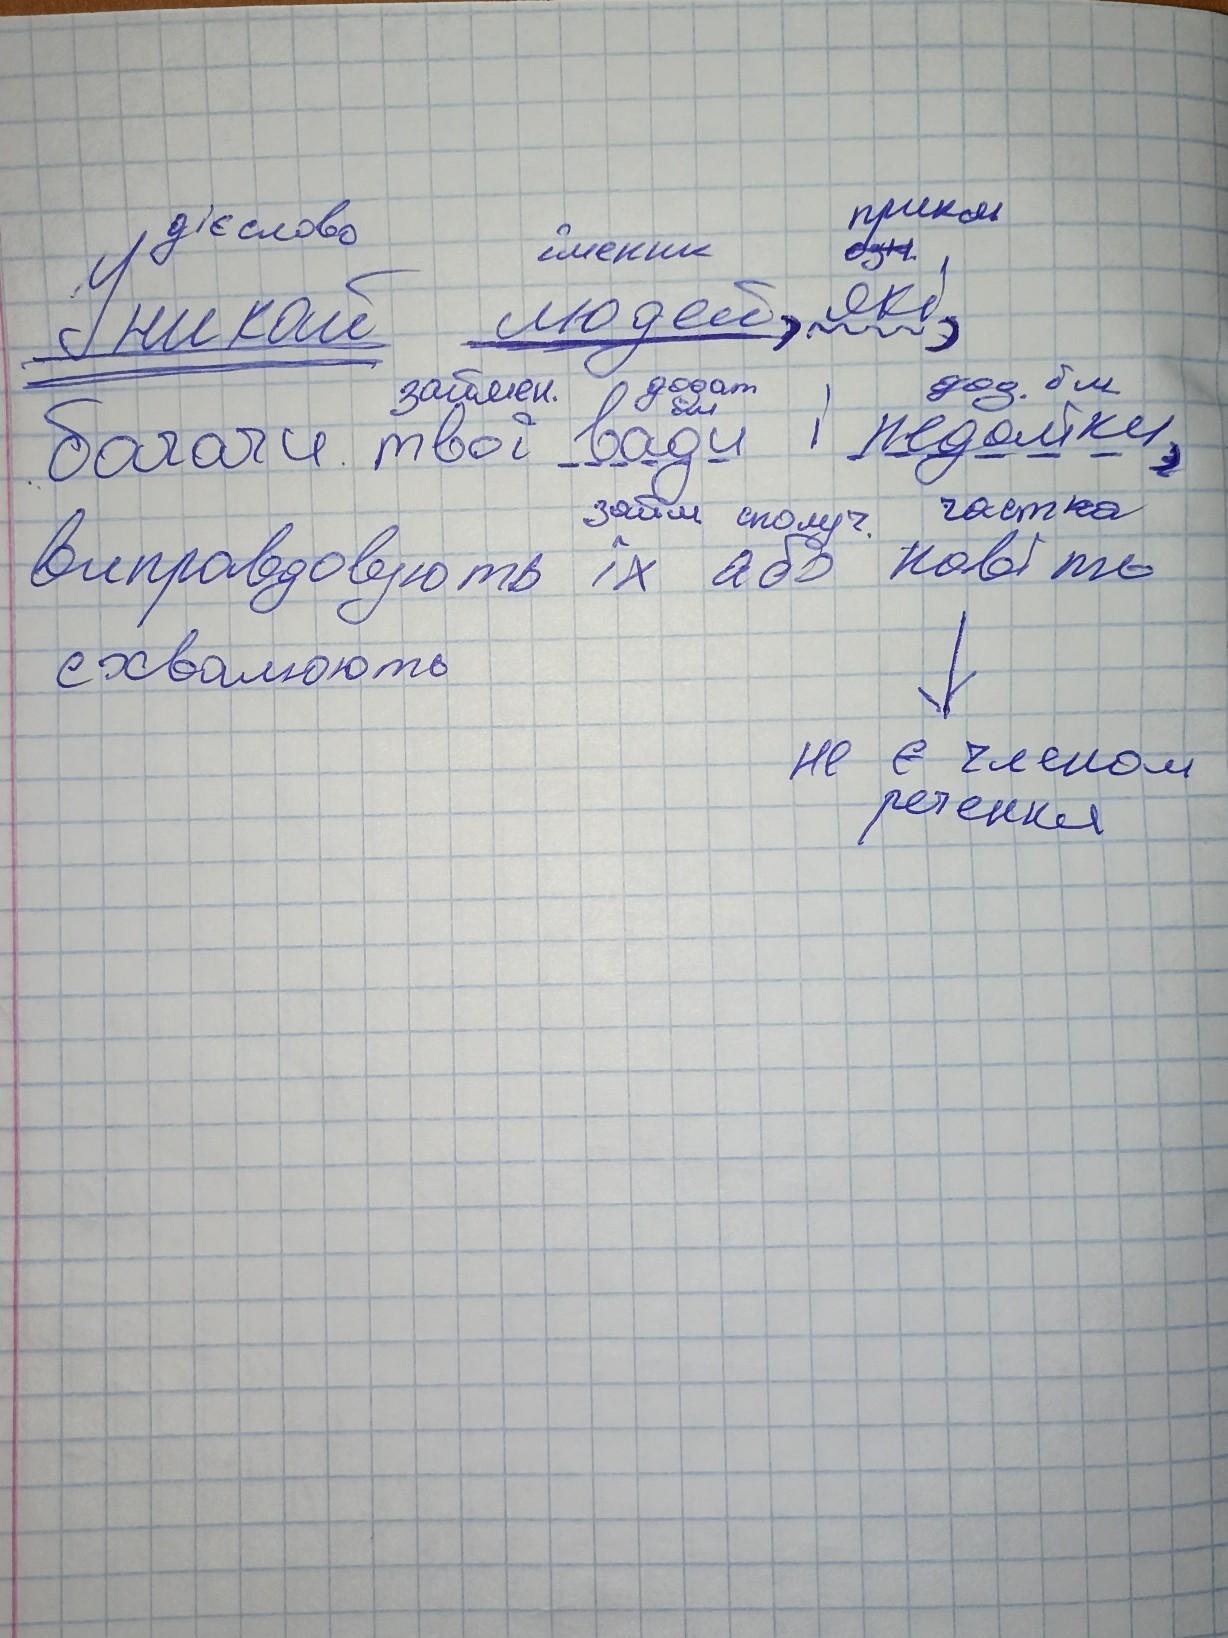 дієслово іменник прикм
озн.
Уникай людей, які,
займен. додат дод. бм
бм
багачи твої вади і недоліки,
займ сполуч. частка
виправдовують їх або навіть
схвалюють
не є членом
речення